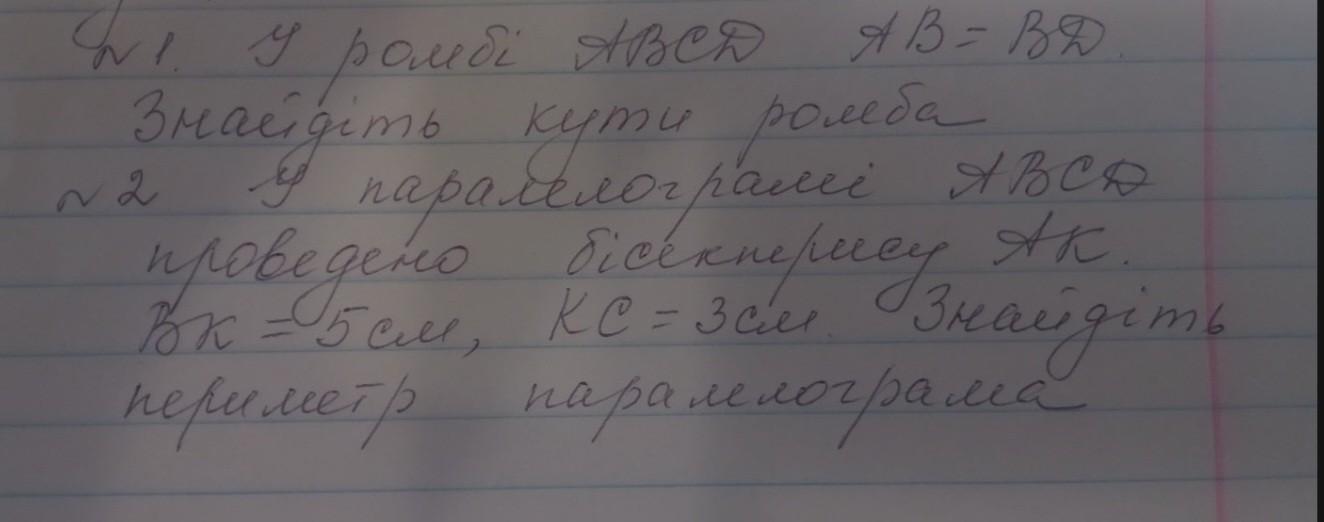 №1. У ромбі ABCD AB = BD.
Знайдіть кути ромба
№2 У паралелограмі ABCD
проведено бісектрису AK.
BK = 5 см, KC = 3 см. Знайдіть
периметр паралелограма